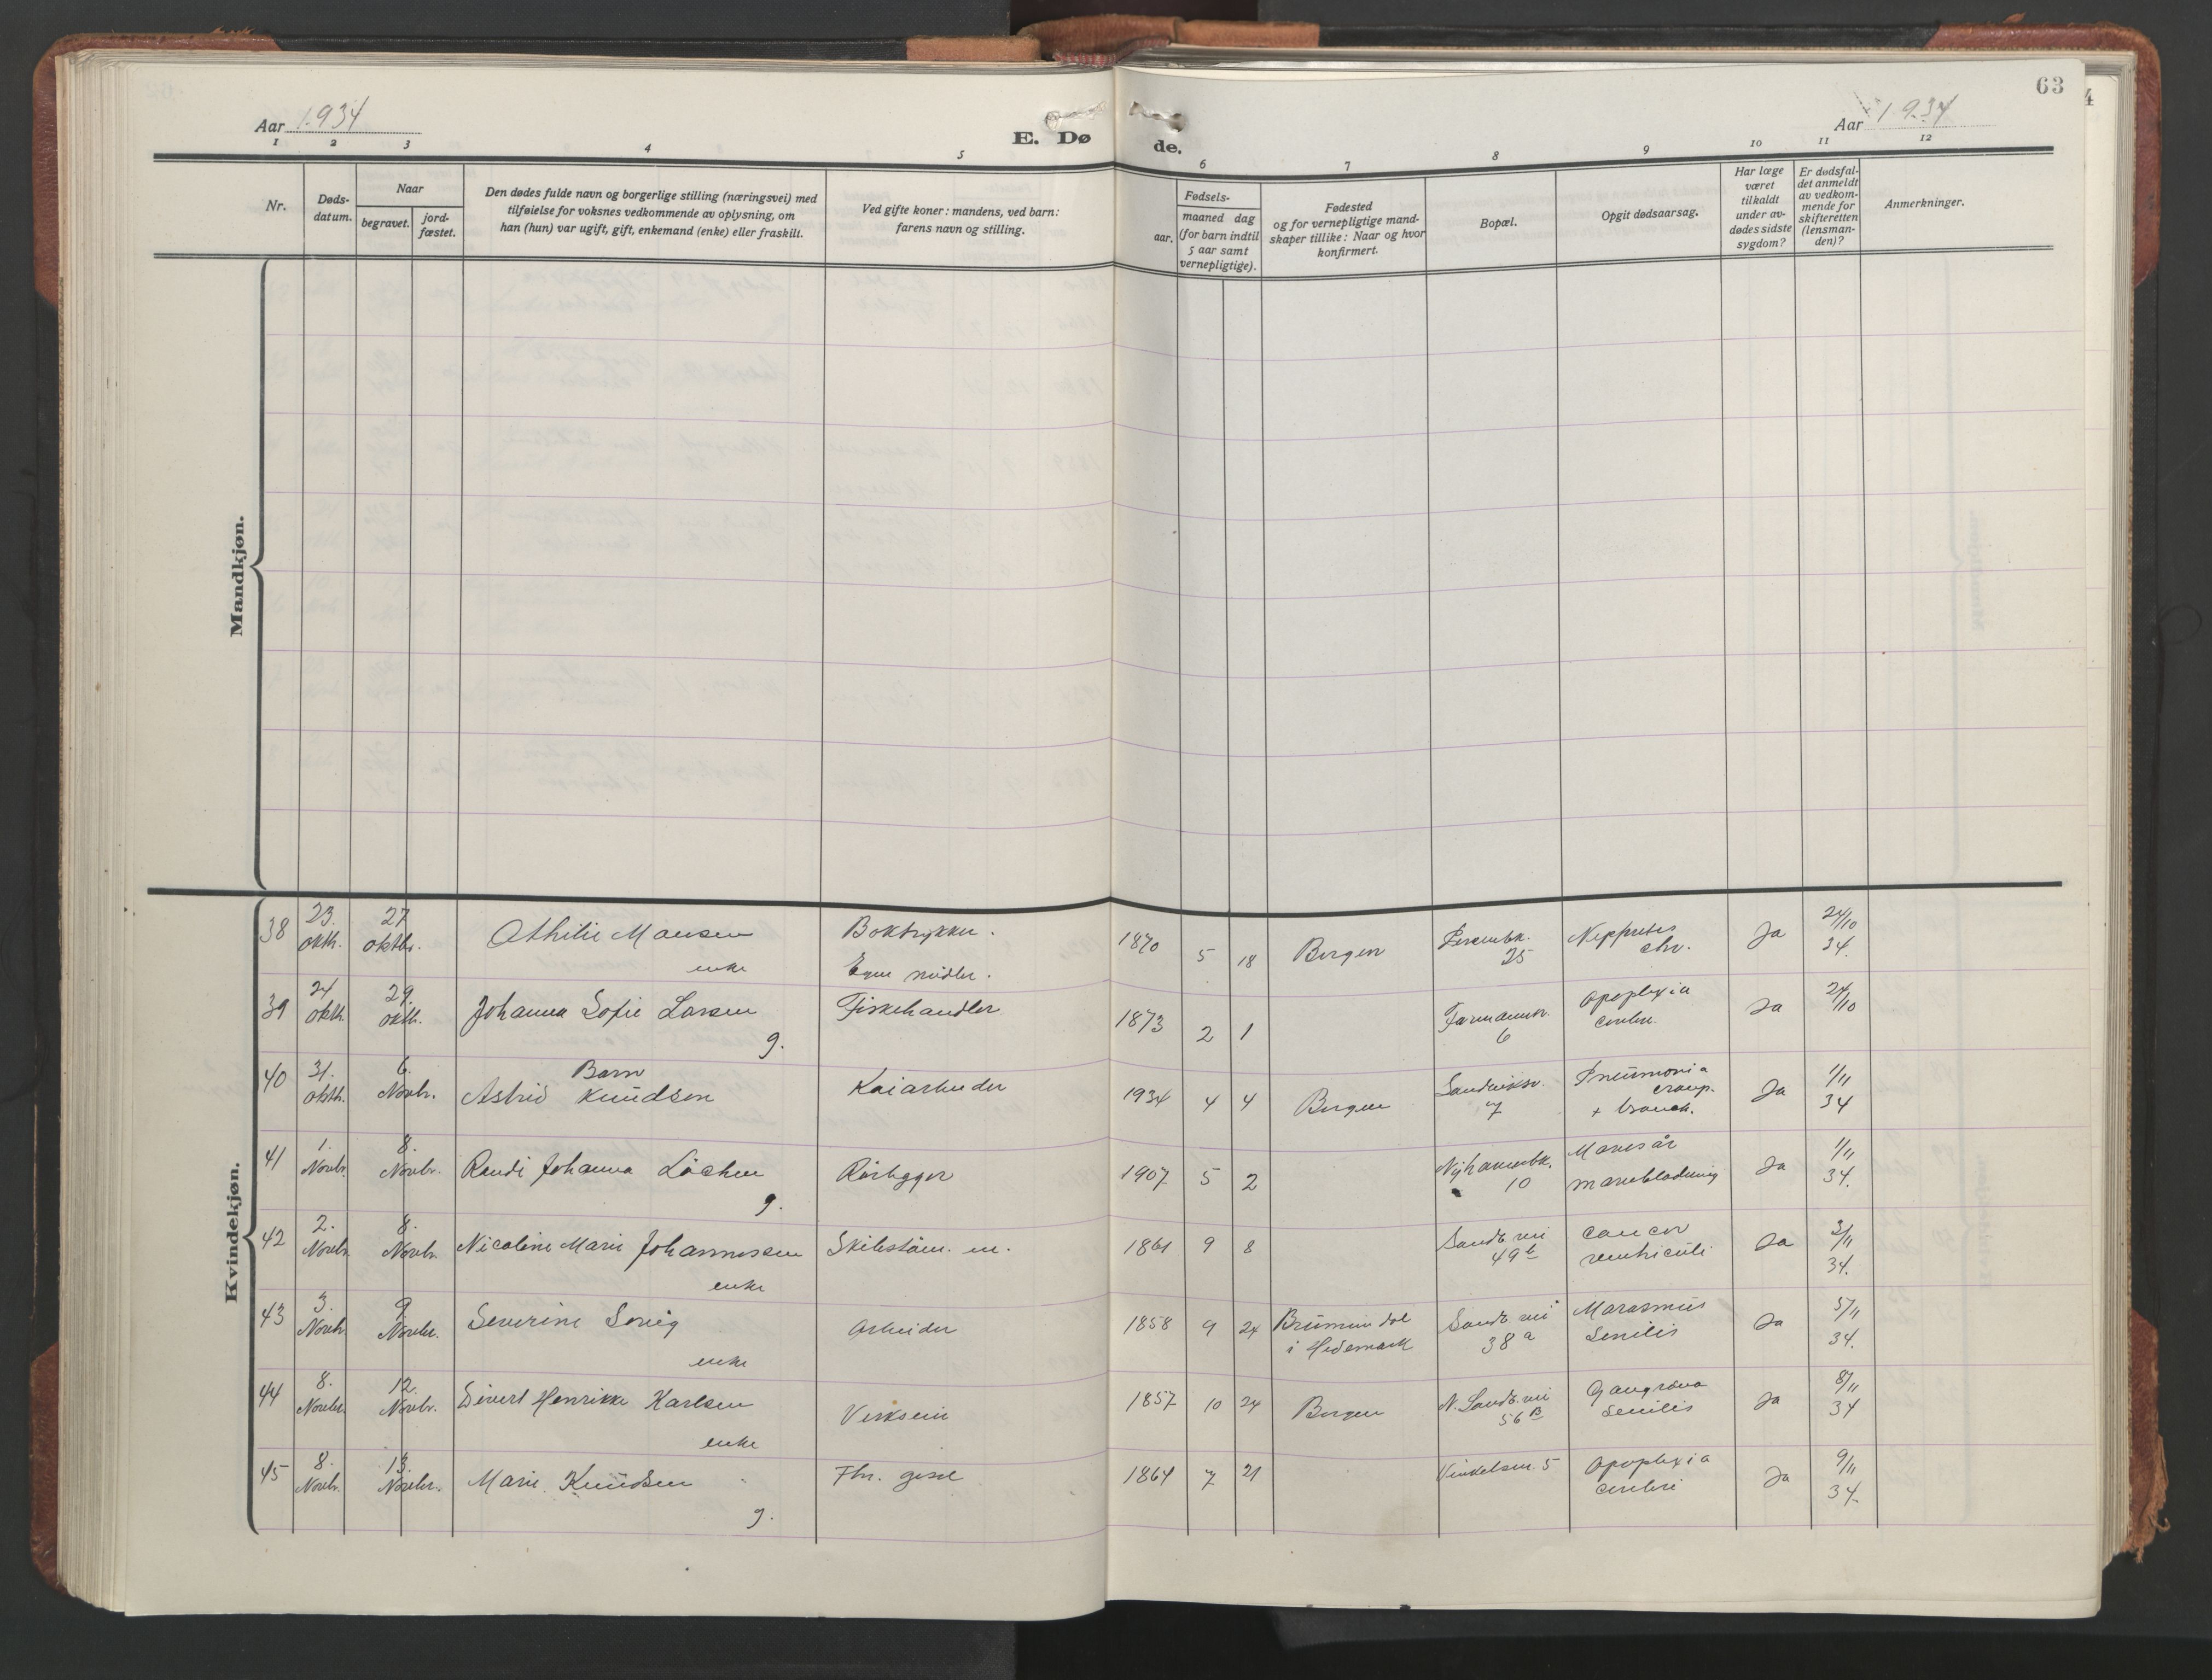 63
Aar 1934
E. Dø
de.
Aar 1934
1 2 3 4 5 6 7 8 9 10 11 12
Nr.
Døds-
datum.
Naar
begravet.
jord-
fæstet.
Den dødes fulde navn og borgerlige stilling (næringsvei) med
tilføielse for voksnes vedkommende av oplysning, om
han (hun) var ugift, gift, enkemand (enke) eller fraskilt.
Ved gifte koner: mandens, ved barn:
farens navn og stilling.
Fødsels-
aar.
maaned dag
(for barn indtil
5 aar samt
vernepligtige).
Fødested
og for vernepligtige mand-
skaper tillike: Naar og hvor
konfirmert.
Bopæl.
Opgit dødsaarsag.
Har læge
været
tilkaldt
under av-
dødes sidste
sygdom?
Er dødsfal-
det anmeldt
av vedkom-
mende for
skifteretten
(lensman-
den)?
Anmerkninger.
Mandkjøn.
Kvindekjøn.
38
23.
oktb.
27
oktbr.
Othilie Monsen
enke
Boktrykker.
Egne midler.
1870 5 18
Bergen
25
chr.
Ja
24/10
34.
39
24
oktb.
29.
oktb.
Johanna Sofie Larsen
g.
Fiskehandler
1873 2 1
6
Apoplexia
cerebri
Ja
24/10
40
31.
oktb.
6.
Novbr.
Barn
Astrid Knudsen
Kaiarbeider
1934 4 4
Bergen
Sandviksv.
7
Pneumonia
croup.
+ bronch.
Ja
1/11
34
41
1.
Novbr.
8.
Novbr.
Randi Johanna Løchen
g.
Rørlegger
1907 5 2
Nyhavnbk.
10
Mavesår
maveblødning
Ja
1/11
34.
42
2.
Novbr.
8.
Novbr.
Nicoline Marie Johannessen
enke
1861 9 8
Sandv. vei
49b
cancer
ventriculi
Ja
3/11
34.
43
3.
Novb.
9
Novbr.
Severine
enke
Arbeider
1858 9 24
Brumundal
i Hedemark
Sandv. vei
38a
Marasmus
Senilis
Ja
5/11
34.
44
8.
Novbr.
12.
Novbr.
Sivert Henrikke Karlsen
enke
Verkseier
1857 10 24
Bergen
N. Sandv. vei
56B
Gangræna
Senilis
Ja
8/11
34
45
8.
Novbr.
13.
Novbr.
Marie Knudsen
g.
1864 7 21
Vinkelsm. 5
Apoplexia
cerebri
Ja
9/11
34.